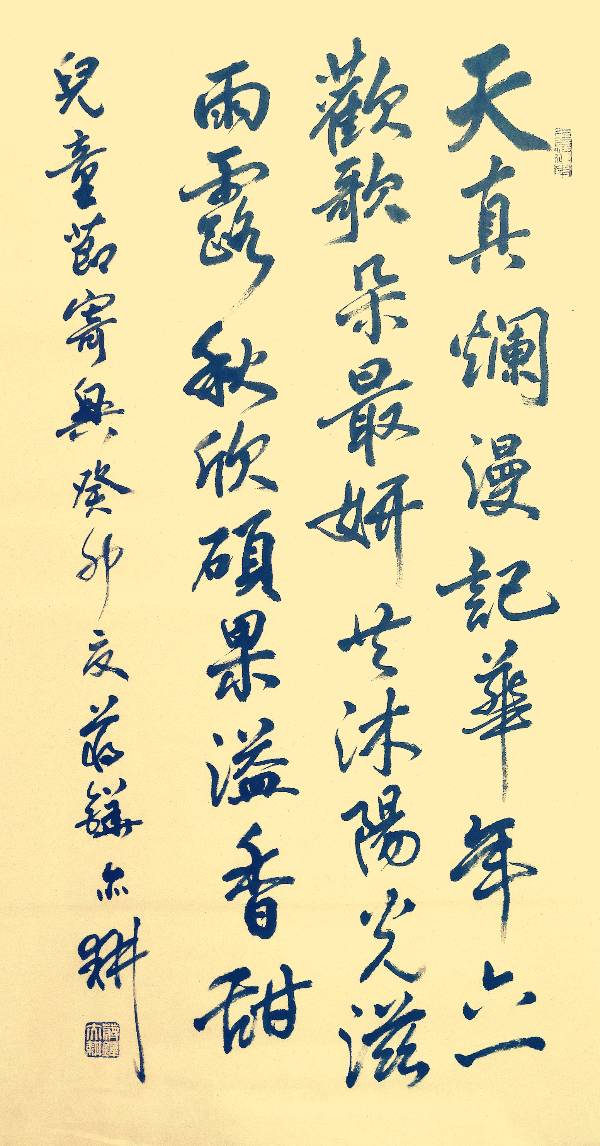 天真爛漫記華年六一
歡歌朵最妍共沐陽光滋
雨露秋欣碩果溢香甜
兒童節寄興癸卯夏蔣鏵亦耕